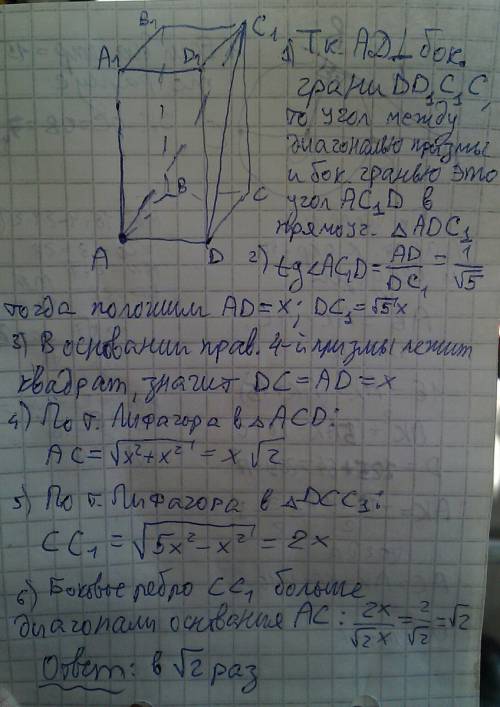 B₁
C₁
A₁
D₁
B
C
A
D
1) Т.к. AD⊥бок.
грани DD₁C₁C,
то угол между
диагональю призмы
и бок. гранью это
угол AC₁D в
прямоуг. △ADC₁
2) tg∠AC₁D = AD/DC₁ = 1/√5
тогда положим AD=x; DC₁=√5x
3) В основании прав. 4-й призмы лежит
квадрат, значит DC=AD=x
4) По т. Пифагора в △ACD:
AC=√(x²+x²)=x√2
5) По т. Пифагора в △DCC₁:
CC₁=√(5x²-x²)=2x
6) Боковое ребро CC₁ больше
диагонали основания AC: 2x/√2x=2/√2=√2
Ответ: в √2 раз